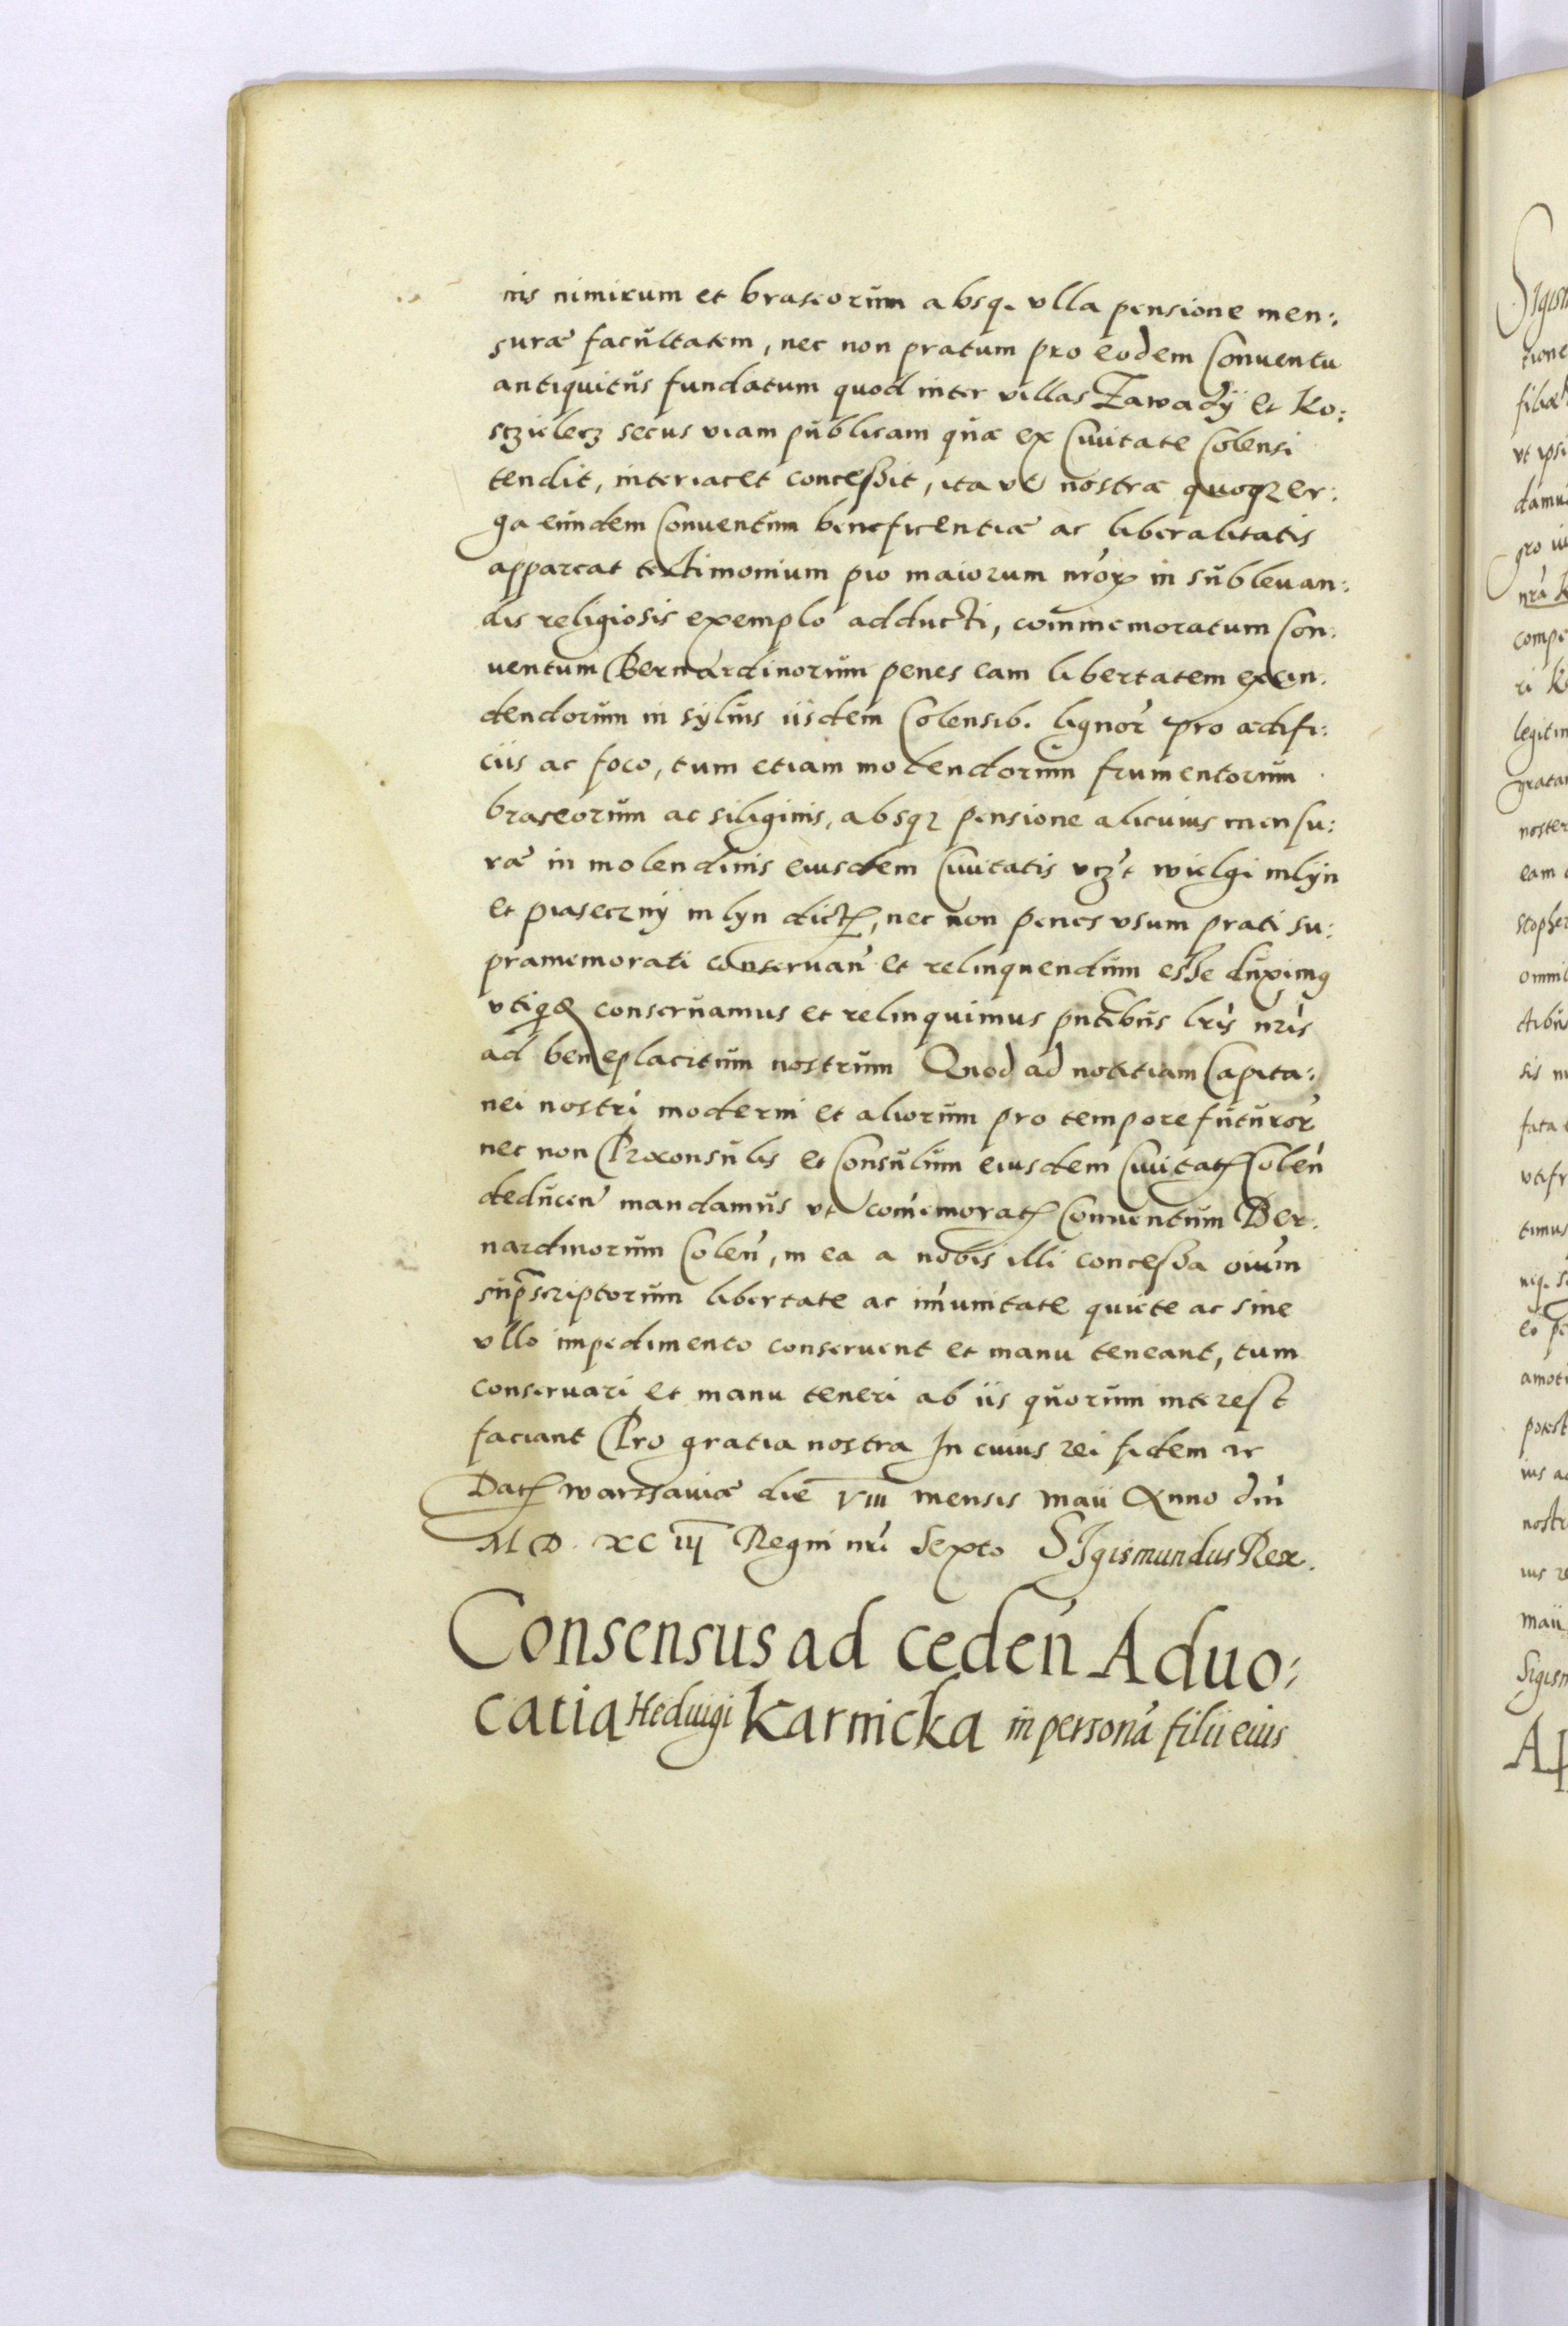 nis nimirum et braseorum absq. vlla pensione men:
suræ facultatem, nec non pratum pro eodem Conuentu
antiquitus fundatum quod inter villas Zawady et Ko:
sczielecz secus viam publicam quæ ex Ciuitate Colensi
tendit, interiacet concessit, ita vt nostræ quoqz er:
ga eundem Conuentum beneficentiæ ac liberalitatis
appareat testimonium pio maiorum nror in subleuan:
dis religiosis exemplo adducti, commemoratum Con:
uentum Bernardinorum penes eam libertatem excin:
dendorum in syluis iisdem Colensib. lignor pro ædifi:
ciis ac foco, tum etiam molendorum frumentorum
braseorum ac siliginis, absqz pensione alicuius mensu:
ræ in molendinis eiusdem Ciuitatis vczt wielgi mlyn
et piaseczny mlyn dict, nec non penes vsum prati su:
pramemorati conseruan et relinquendum esse duximg
vtiqz conseruamus et relinquimus pntibus lris nris
ad beneplacitum nostrum Quod ad notitiam Capita:
nei nostri moderni et aliorum pro tempore futuror
nec non Proconsulis et Consulum eiusdem Ciuitat Colen
deducen mandamus vt comemorat Conuentum Ber:
nardinorum Colen, in ea a nobis illi concessa oium
suprascriptorum libertate ac imunitate quiete ac sine
vllo impedimento conseruent et manu teneant, tum
conseruari et manu teneri ab iis quorum interest
faciant Pro gratia nostra In cuius rei fidem ac
Dat Warssauiæ die VIII mensis Maii Anno dni
M D. XC iij Regni nri Sexto SIgismundus Rex.
Consensus ad ceden Aduo:
catia Heduigi Karnicka in persona filii eius